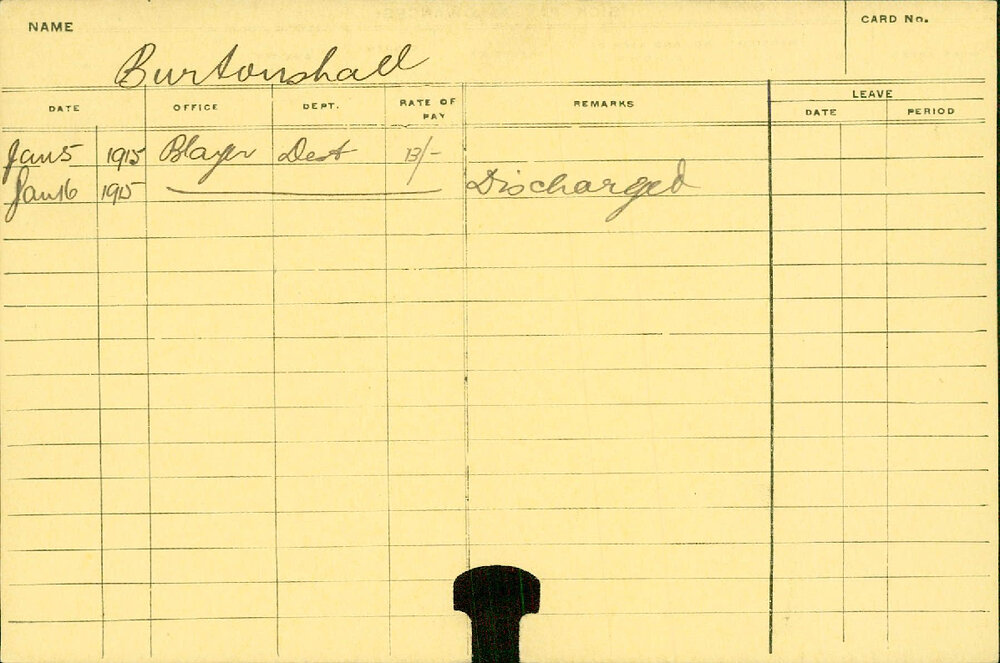 NAME
CARD No.
Burtonshall
DATE OFFICE DEPT. RATE OF PAY REMARKS LEAVE
DATE PERIOD
Jan 5 1915 Blayer Dest 13/-
Jan 16 1915 Discharged